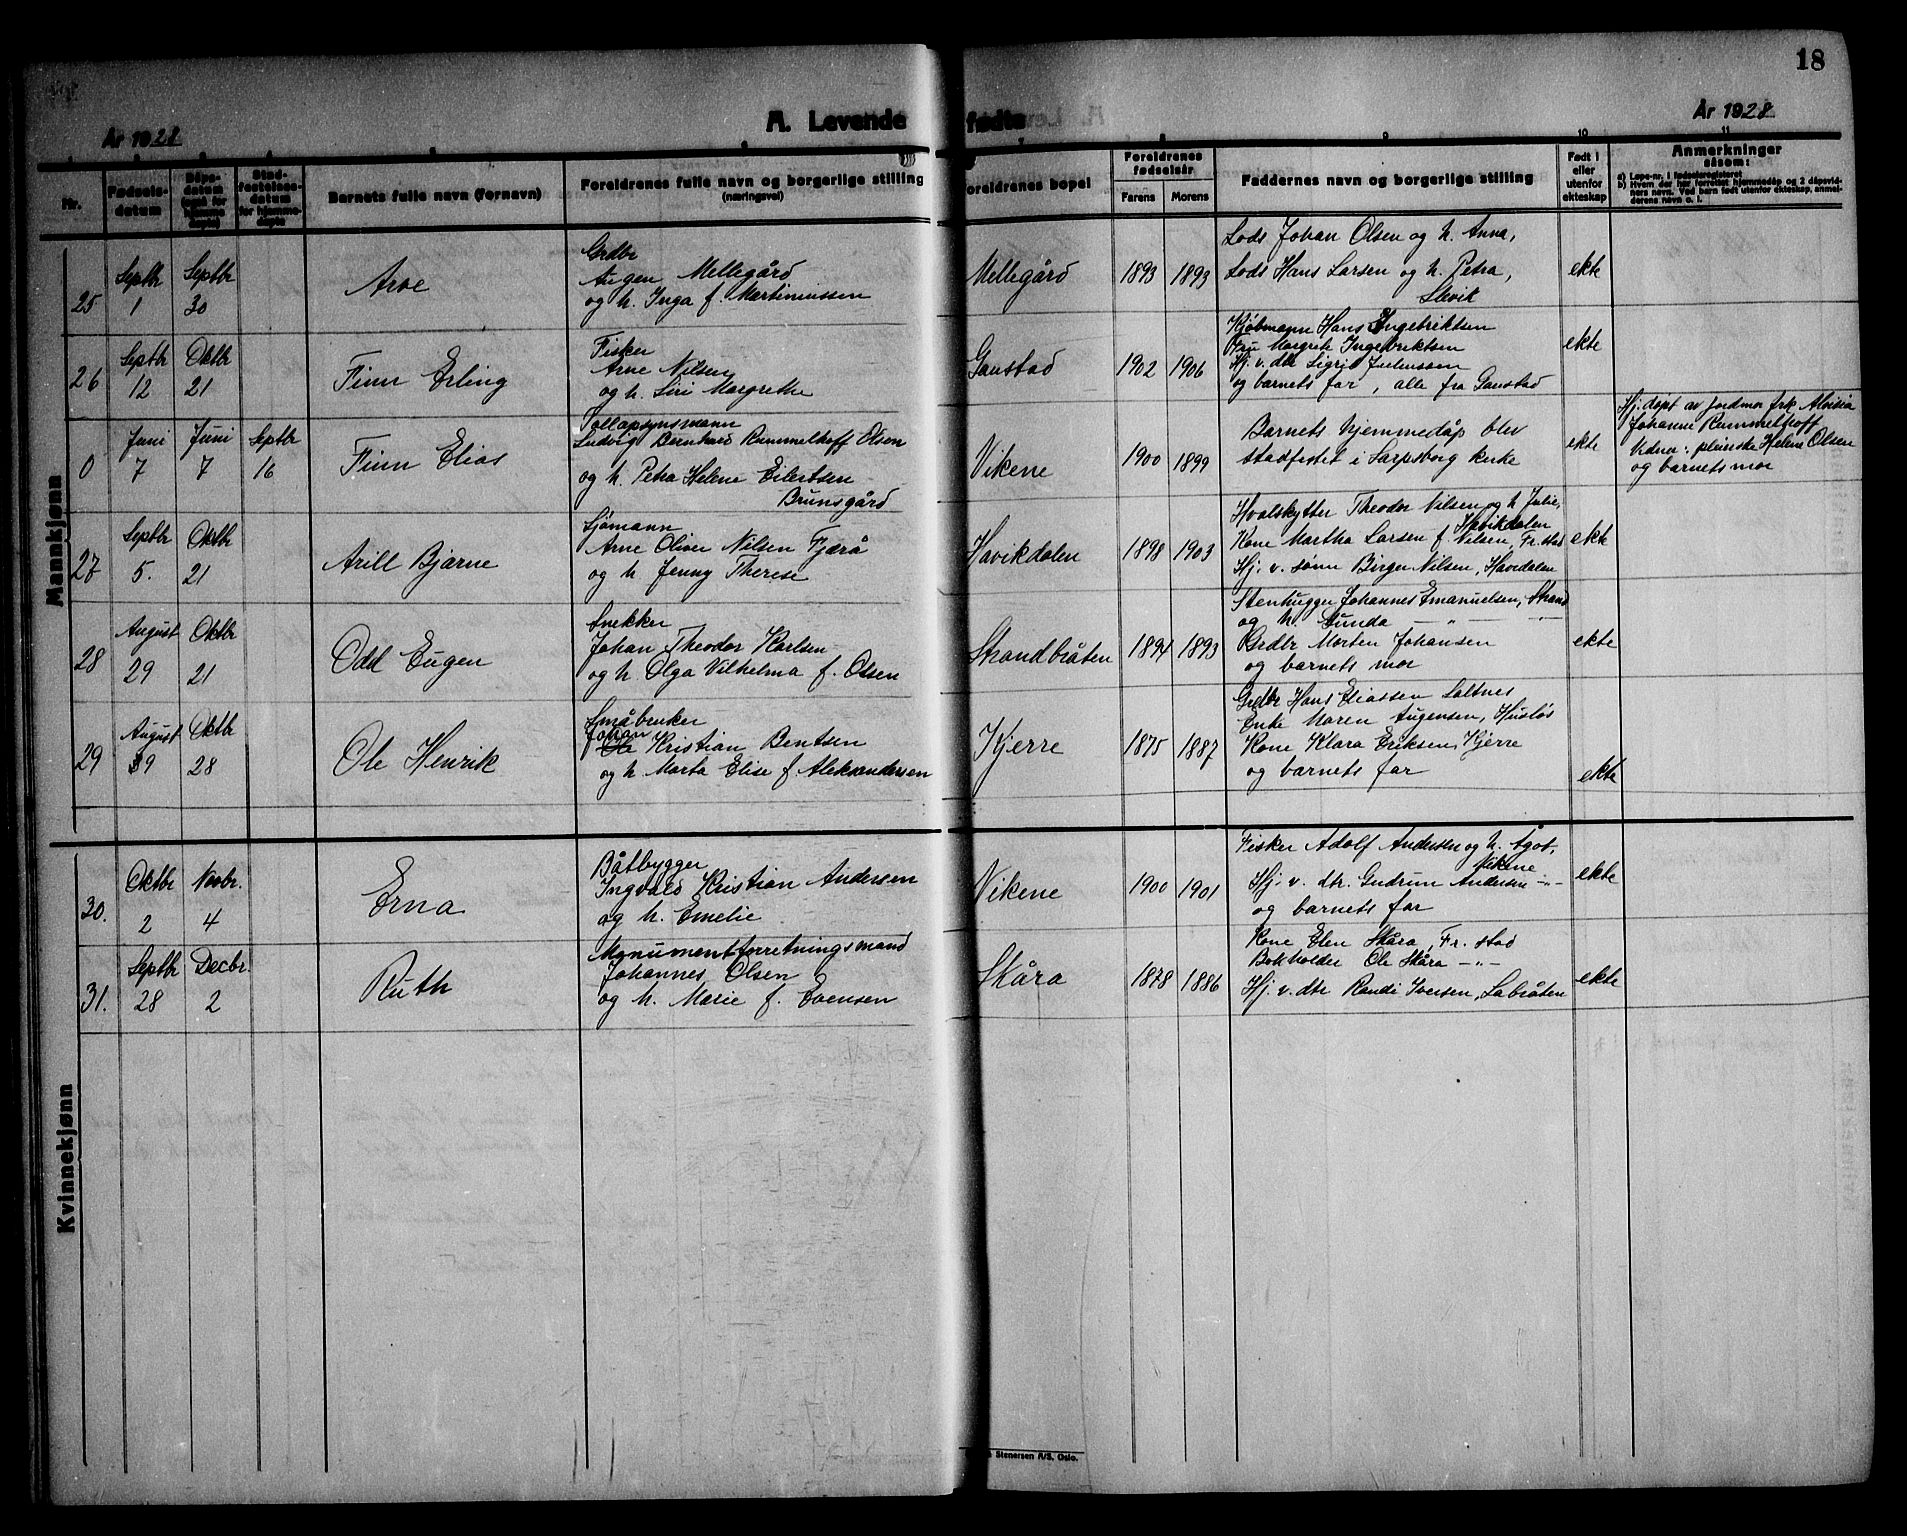 18
År 1928
A. Levende fødte
År 1928
Nr.
Fødselsdatum
Dåpsdatum
Barnets fulle navn (fornavn)
Foreldrenes fulle navn og borgerlige stilling
(næringsvei)
Foreldrenes bopel
Foreldrenes fødselsår
Farens
Morens
Faddernes navn og borgerlige stilling
Født i eller utenfor ekteskap
Anmerkninger
såsom:
a) Løpe-nr. i fødselsregisteret
b) Hvem der har forrettet hjemmedåp og 2 dåpsvidners navn. Ved barn født utenfor ekteskap, anmelderens navn o. l.
Mannkjønn
25
Septbr 1
Septbr 30
Arve
Grdbr
Augen Mellegård
og h. Inga f. Martinussen
Mellegård
1893
1893
Lods Johan Olsen og h. Anna,
Lods Hans Larsen og h. Petra,
Slevik
ekte
26
Septbr 12
Oktbr 21
Finn Erling
Fisker
Arne Nilsen
og h. Siri Margrethe
Gaustad
1902
1906
Kjøbmann Hans Ingebriktsen
Fru Margrit Ingebriktsen
Hj. v. dtr Sigrid Juliussen
og barnets far, alle fra Gaustad
ekte
0
Juni 7
Juni 7
Septbr 16
Finn Elias
Tollopsynsmann
Ludvig Bernhard Rummelhoff Olsen
og h. Petra Helene Eilertsen
Brunsgård
Vikene
1900
1899
Barnets hjemmedåp blev
stadfestet i Sarpsborg kirke
ekte
Hj.døpt av jordmor frk Aloisia
Johanne Rummelhoff
Vidner: pleierske Helene Olsen
og barnets mor
27
Septbr 5.
Oktbr 21
Arill Bjarne
Sjømann
Arne Oliver Nilsen Fjærå
og h Jenny Therese
Havikdalen
1898
1903
Hvalskytter Theodor Nilsen og h Julie,
Havikdalen
Kone Martha Larsen f. Nilsen, Fr.stad
Hj. v. sønn Birger Nilsen, Havidalen
ekte
28
August 29
Oktbr 21
Odd Eugen
Snekker
Johan Theodor Karlsen
og h Olga Vilhelma f. Olsen
Strandbråten
1894
1893
Stenhugger Johannes Emanuelsen, Strand
og h. Gunda — " — — " —
Grdbr Morten Johansen
og barnets mor
ekte
29
August 39
Oktbr 28
Ole Henrik
Småbruker
Johan
Ole Kristian Bentsen
og h Marta Elise f. Aleksandersen
Kjerre
1875
1887
Grdbr Hans Eliassen Saltnes
Enke Maren Augensen, Husløs
Kone Klara Eriksen, Kjerre
og barnets far
ekte
Kvinnekjønn
30.
Oktbr 2
Novbr. 4
Erna
Båtbygger
Ingvald Kristian Andersen
og h. Emelie
Vikene
1900
1901
Fisker Adolf Andersen og h. Ågot,
Vikene
Hj. v. dtr. Gudrun Andersen — " —
og barnets far
ekte
31.
Septbr 28
Decbr. 2
Ruth
Monumentforretningsmand
Johannes Olsen
og h. Marie f. Evensen
Skåra
1878
1886
Kone Elen Skåra, Fr. stad
Bokholder Ole Skåra — " —
Hj. v. dtr Randi Iversen, Labråten
ekte
Stenersen A/S, Oslo.